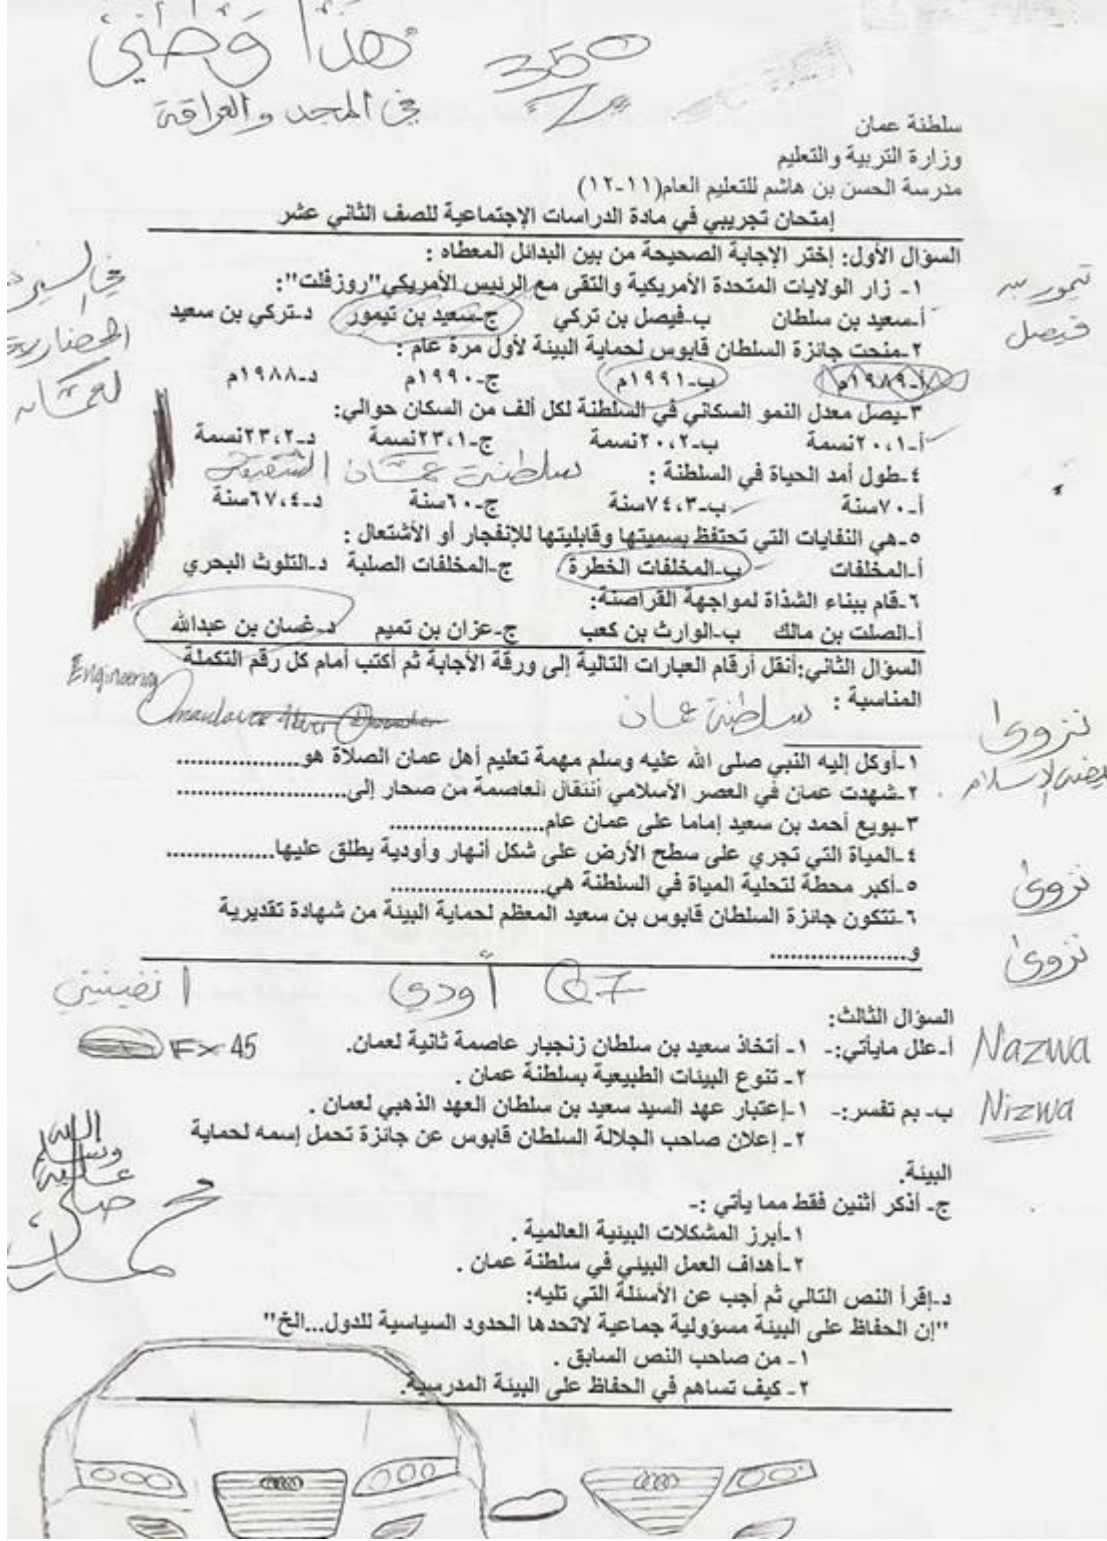 هذا وطني
في المجد والعراقة
350
Z
سلطنة عمان
وزارة التربية والتعليم
مدرسة الحسن بن هاشم للتعليم العام(١١-١٢)
إمتحان تجريبي في مادة الدراسات الإجتماعية للصف الثاني عشر
السؤال الأول: إختر الإجابة الصحيحة من بين البدائل المعطاه :
١- زار الولايات المتحدة الأمريكية والتقى مع الرئيس الأمريكي"روزفلت":
أ-سعيد بن سلطان ب-فيصل بن تركي ج-سعيد بن تيمور د-تركي بن سعيد
تيمور بن
فيصل
الحضارية
٢-منحت جائزة السلطان قابوس لحماية البيئة لأول مرة عام :
أ-١٩٨٩م ب-١٩٩١م ج-١٩٩٠م د-١٩٨٨م
٣-يصل معدل النمو السكاني في السلطنة لكل ألف من السكان حوالي:
أ-٢٠،١نسمة ب-٢٠،٢نسمة ج-٢٣،١نسمة د-٢٣،٢نسمة
٤-طول أمد الحياة في السلطنة :
سلطنة عمان
أ-٧٠سنة ب-٧٤،٣سنة ج-٦٠سنة د-٦٧،٤سنة
٥-هي النفايات التي تحتفظ بسميتها وقابليتها للإنفجار أو الأشتعال :
أ-المخلفات ب-المخلفات الخطرة ج-المخلفات الصلبة د-التلوث البحري
٦-قام ببناء الشذاة لمواجهة القراصنة:
أ-الصلت بن مالك ب-الوارث بن كعب ج-عزان بن تميم د-غسان بن عبدالله
السؤال الثاني:أنقل أرقام العبارات التالية إلى ورقة الأجابة ثم أكتب أمام كل رقم التكملة
المناسبة :
سلطنة عمان
Engineering
نزوى
١-أوكل إليه النبي صلى الله عليه وسلم مهمة تعليم أهل عمان الصلاة هو..................
٢-شهدت عمان في العصر الأسلامي أنتقال العاصمة من صحار إلى......................
٣-بويع أحمد بن سعيد إماما على عمان عام......................
٤-المياة التي تجري على سطح الأرض على شكل أنهار وأودية يطلق عليها...............
٥-أكبر محطة لتحلية المياة في السلطنة هي......................
٦-تتكون جائزة السلطان قابوس بن سعيد المعظم لحماية البيئة من شهادة تقديرية
و...................
نزوى
نزوى
Q7 أودي انفينيتي
FX 45
السؤال الثالث:
أ-علل مايأتي:- ١- أتخاذ سعيد بن سلطان زنجبار عاصمة ثانية لعمان.
٢- تنوع البيئات الطبيعية بسلطنة عمان .
ب- بم تفسر:- ١-إعتبار عهد السيد سعيد بن سلطان العهد الذهبي لعمان .
٢- إعلان صاحب الجلالة السلطان قابوس عن جائزة تحمل إسمه لحماية
البيئة.
Nazwa
Nizwa
ج- أذكر أثنين فقط مما يأتي :-
١-أبرز المشكلات البيئية العالمية .
٢-أهداف العمل البيئي في سلطنة عمان .
د-إقرأ النص التالي ثم أجب عن الأسئلة التي تليه:
"إن الحفاظ على البيئة مسؤولية جماعية لاتحدها الحدود السياسية للدول...الخ"
١- من صاحب النص السابق .
٢- كيف تساهم في الحفاظ على البيئة المدرسية.